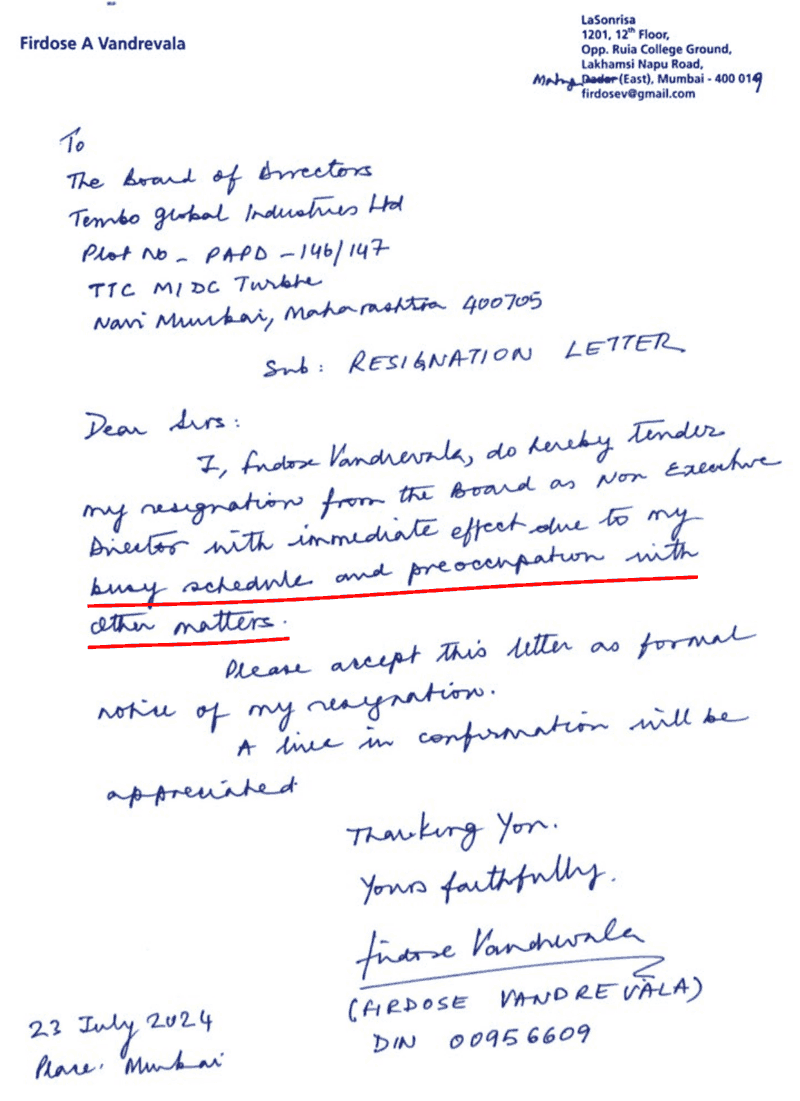 Firdose A Vandrevala
LaSonrisa
1201, 12th Floor,
Opp. Ruia College Ground,
Lakhamsi Napu Road,
Matunga Dadar (East), Mumbai - 400 019
firdosev@gmail.com
To
The Board of Directors
Tembo Global Industries Ltd
Plot No - PAPD - 146/147
TTC MIDC Turbhe
Navi Mumbai, Maharashtra 400705
Sub: RESIGNATION LETTER
Dear Sirs:
I, Firdose Vandrevala, do hereby tender
my resignation from the Board as Non Executive
Director with immediate effect due to my
busy schedule and preoccupation with
other matters.
Please accept this letter as formal
notice of my resignation.
A line in confirmation will be
appreciated
Thanking You.
Yours faithfully.
Firdose Vandrevala
(FIRDOSE VANDREVALA)
DIN 00956609
23 July 2024
Place. Mumbai